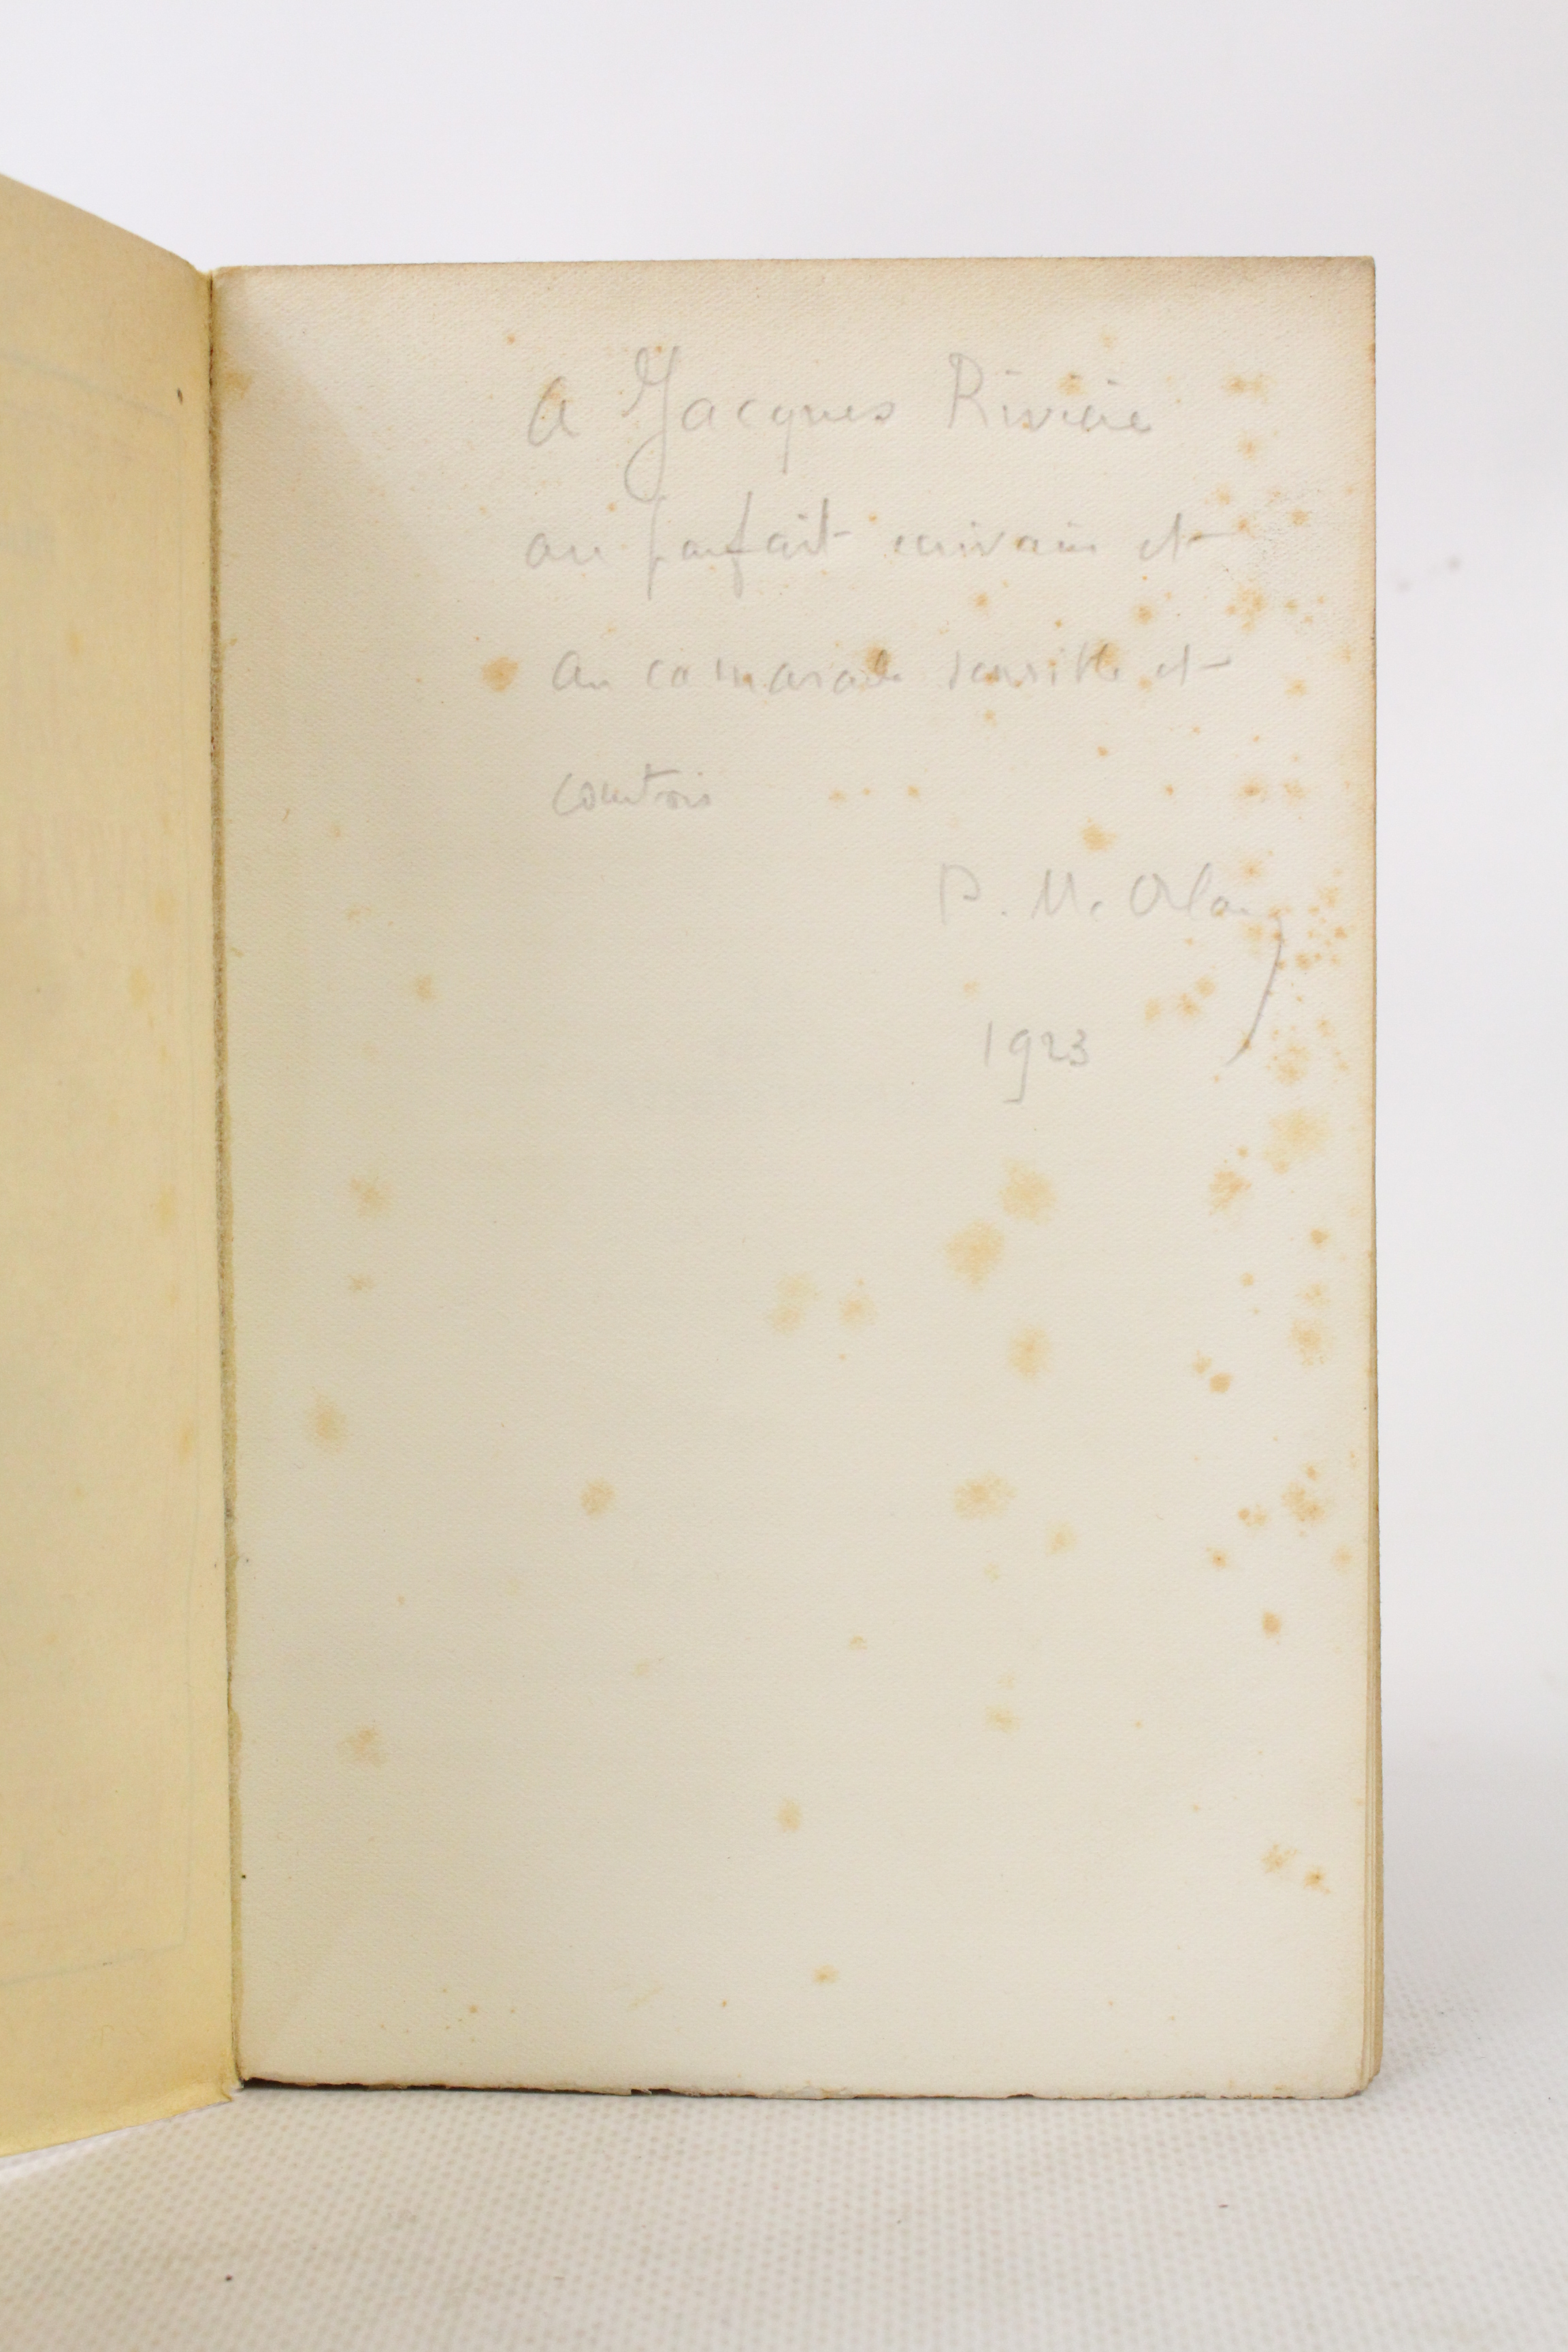 a Jacques Rivière
au parfait ecrivain et
au camarade sensible et
courtois
P. Mc Orlan
1923